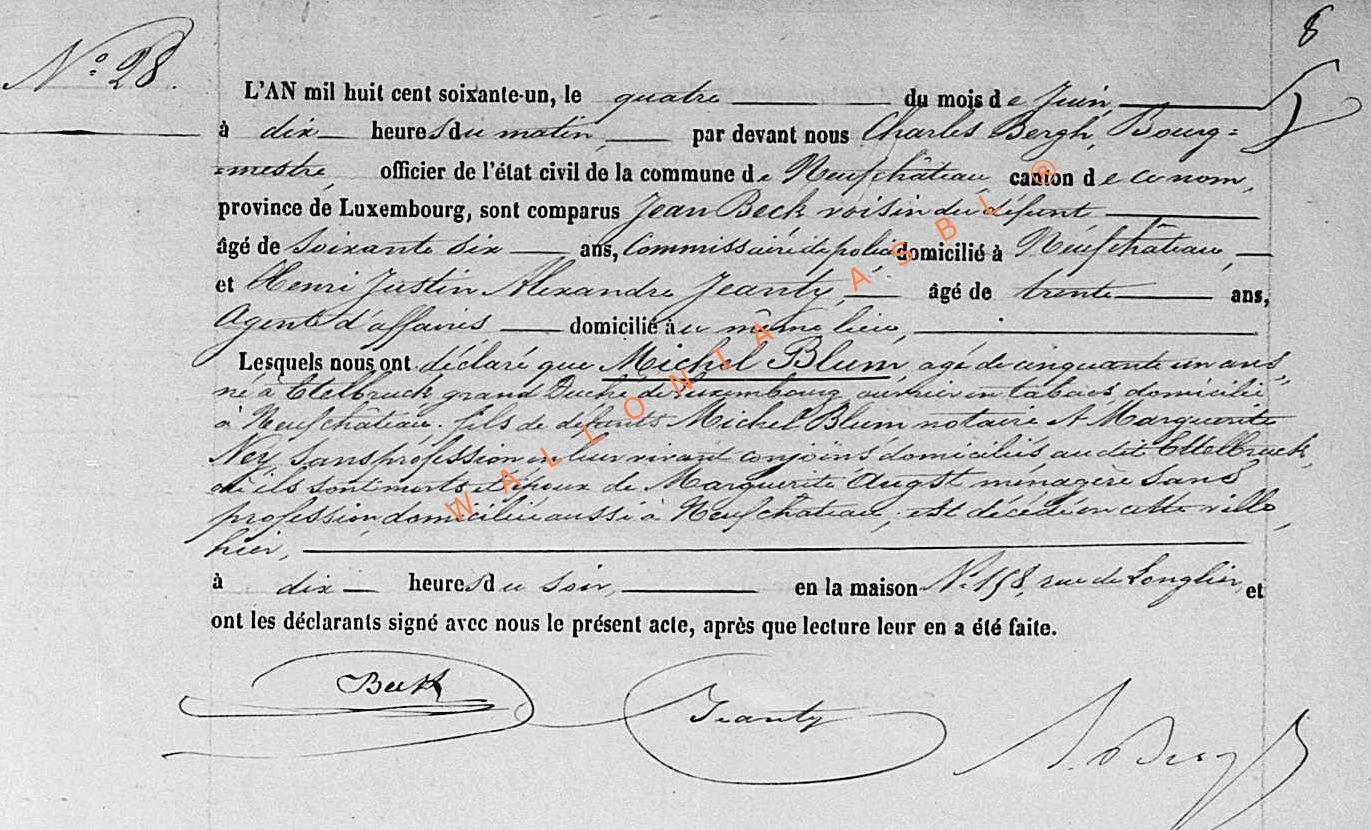 8
N° 28.
L'AN mil huit cent soixante-un, le quatre du mois de Juin
à dix heures du matin, par devant nous Charles Bergh, Bourg=
=mestre, officier de l'état civil de la commune de Neufchâteau canton de ce nom,
province de Luxembourg, sont comparus Jean Beck voisin du défunt
âgé de soixante dix ans, Commissaire de police domicilié à Neufchâteau,
et Henri Justin Alexandre Jeanty, âgé de trente ans,
Agent d'affaires domicilié au même lieu,
Lesquels nous ont déclaré que Michel Blum, agé de cinquante un ans,
né à Etelbruck grand Duché de Luxembourg, ouvrier en tabacs domicilié
à Neufchâteau, fils de défunts Michel Blum notaire et Marguerite
Ney, sans profession en leur vivant conjoins domiciliés au dit Ettelbruck,
où ils sont morts et époux de Marguerite Augst ménagère sans
profession, domiciliée aussi à Neufchâteau, est décédé en cette ville,
hier,
à dix heures du soir, en la maison N° 158, rue de Longlier, et
ont les déclarants signé avec nous le présent acte, après que lecture leur en a été faite.
Beck Jeanty
WALLONIA ASBL ®